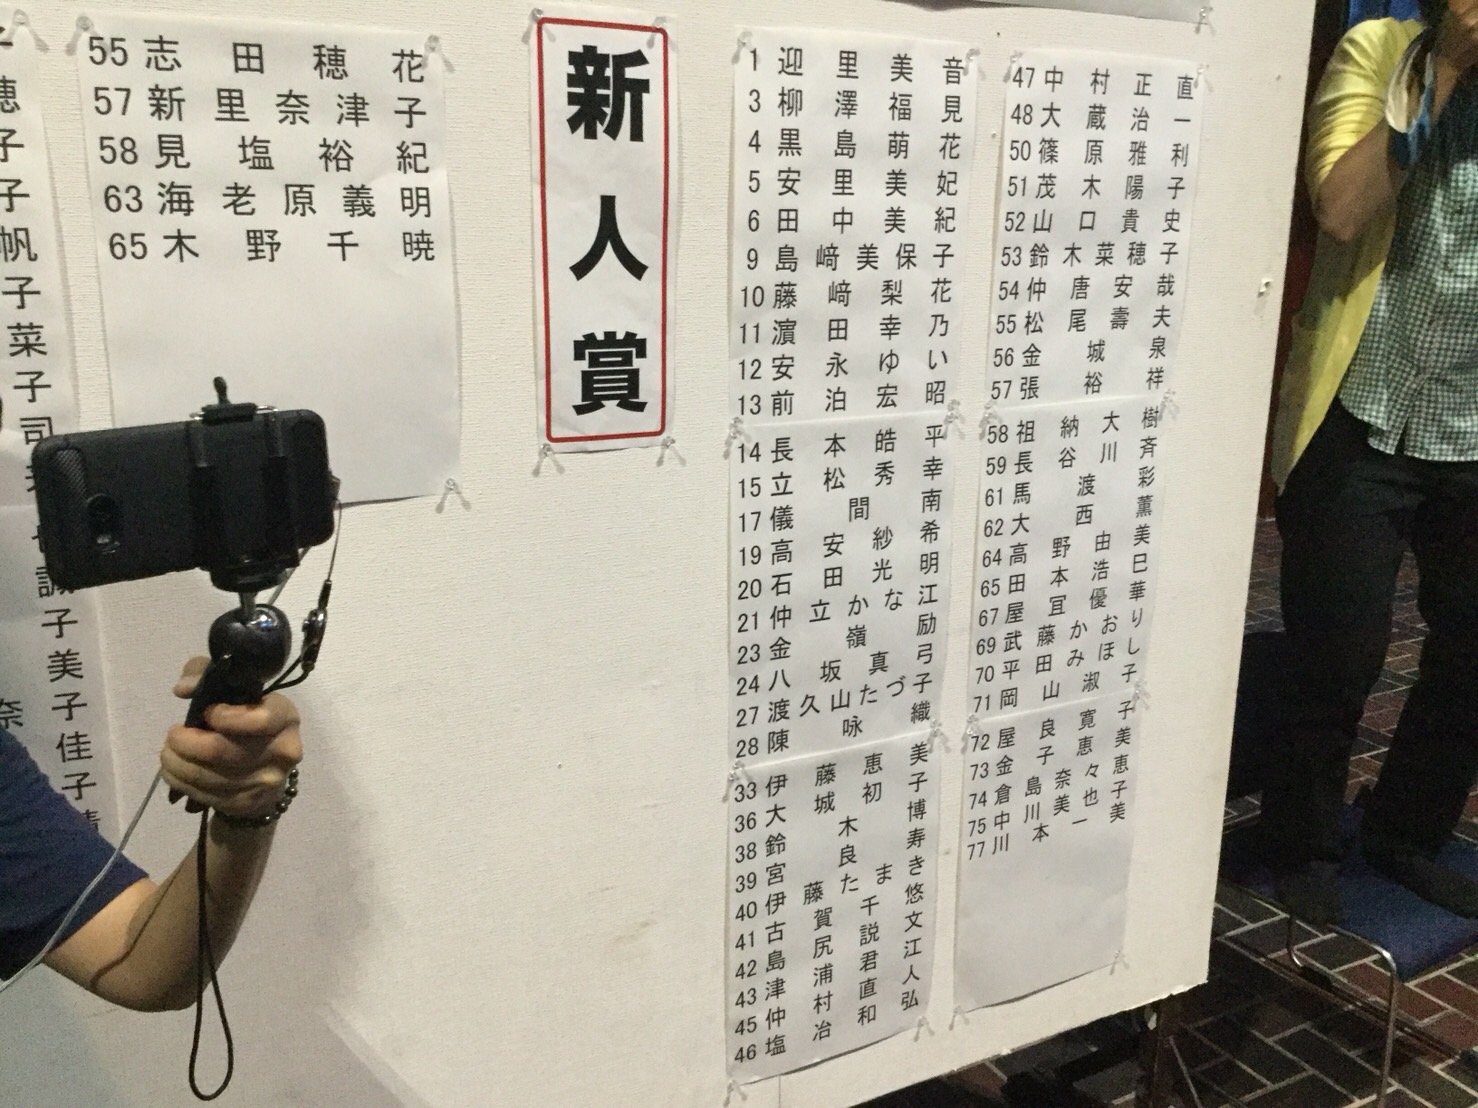 55 志田穂花
57 新里奈津子
58 見塩裕紀
63 海老原義明
65 木野千暁
新人賞
1 迎里美音
3 柳澤福見
4 黒島萌花
5 安里美妃
6 田中美紀
9 島﨑美保子
10 藤﨑梨花
11 濵田幸乃
12 安永ゆい
13 前泊宏昭
14 長本皓平
15 立松秀幸
17 儀間南
19 高安紗希
20 石田光明
21 仲立かな江
23 金嶺励
24 八坂真弓
27 渡久山たづ子
28 陳咏織
33 伊藤恵美
36 大城初子
38 鈴木博
39 宮良寿
40 伊藤たまき
41 古賀千悠
42 島尻説文
43 津浦君江
45 仲村直人
46 塩冶和弘
47 中村正直
48 大蔵治一
50 篠原雅利
51 茂木陽子
52 山口貴史
53 鈴木菜穂子
54 仲唐安哉
55 松尾壽夫
56 金城泉
57 張裕祥
58 祖納大樹
59 長谷川斉
61 馬渡彩
62 大西薫
64 高野由美
65 田本浩巳
67 屋冝優華
69 武藤かおり
70 平田みほし
71 岡山淑子
72 屋良寛子
73 金子恵美
74 倉島奈々恵
75 中川美也子
77 川本一美